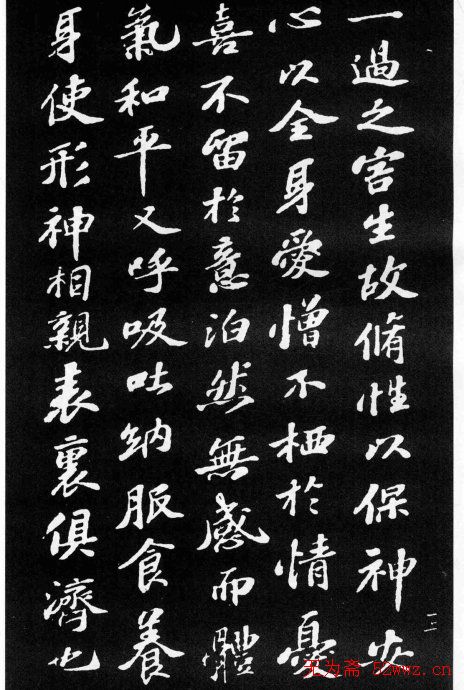 一過之害生故脩性以保神安
心以全身愛憎不栖於情憂
喜不留於意泊然無感而體
氣和平又呼吸吐納服食養
身使形神相親表裏俱濟也
二
无为斋 52wwz.cn